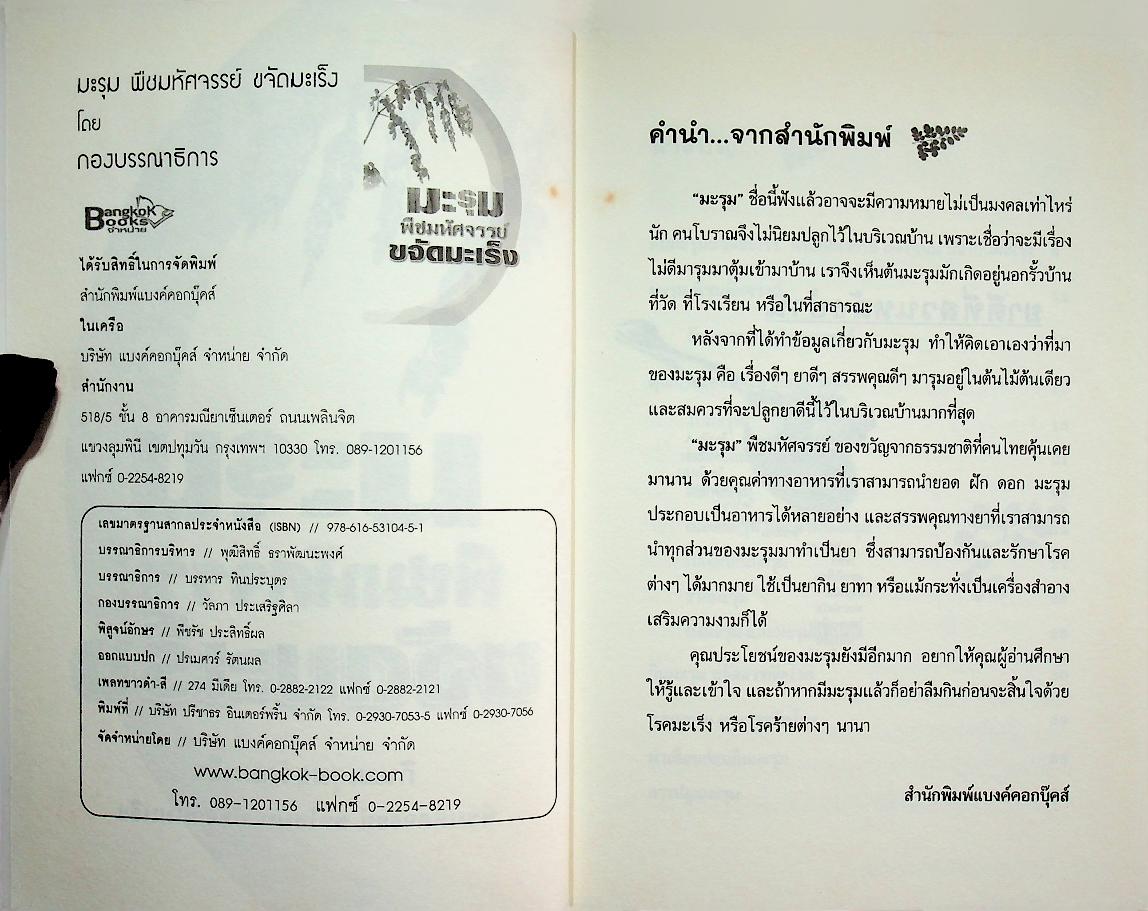 มะรุม พืชมหัศจรรย์ ขจัดมะเร็ง
โดย
กองบรรณาธิการ
มะรุม
พืชมหัศจรรย์
ขจัดมะเร็ง
Bangkok
Books
จำหน่าย
ได้รับสิทธิ์ในการจัดพิมพ์
สำนักพิมพ์แบงค์คอกบุ๊คส์
ในเครือ
บริษัท แบงค์คอกบุ๊คส์ จำหน่าย จำกัด
สำนักงาน
518/5 ชั้น 8 อาคารมณียาเซ็นเตอร์ ถนนเพลินจิต
แขวงลุมพินี เขตปทุมวัน กรุงเทพฯ 10330 โทร. 089-1201156
แฟกซ์ 0-2254-8219
เลขมาตรฐานสากลประจำหนังสือ (ISBN) // 978-616-53104-5-1
บรรณาธิการบริหาร // พุฒิสิทธิ์ ธราพัฒนะพงศ์
บรรณาธิการ // บรรหาร ทินประบุตร
กองบรรณาธิการ // วัลภา ประเสริฐศิลา
พิสูจน์อักษร // พีชรัช ประสิทธิ์ผล
ออกแบบปก // ปรเมศวร์ รัตนผล
เพลทขาวดำ-สี // 274 มีเดีย โทร. 0-2882-2122 แฟกซ์ 0-2882-2121
พิมพ์ที่ // บริษัท ปรีชาธร อินเตอร์พริ้น จำกัด โทร. 0-2930-7053-5 แฟกซ์ 0-2930-7056
จัดจำหน่ายโดย // บริษัท แบงค์คอกบุ๊คส์ จำหน่าย จำกัด
www.bangkok-book.com
โทร. 089-1201156 แฟกซ์ 0-2254-8219
คำนำ...จากสำนักพิมพ์
“มะรุม” ชื่อนี้ฟังแล้วอาจจะมีความหมายไม่เป็นมงคลเท่าไหร่
นัก คนโบราณจึงไม่นิยมปลูกไว้ในบริเวณบ้าน เพราะเชื่อว่าจะมีเรื่อง
ไม่ดีมารุมมาตุ้มเข้ามาบ้าน เราจึงเห็นต้นมะรุมมักเกิดอยู่นอกรั้วบ้าน
ที่วัด ที่โรงเรียน หรือในที่สาธารณะ
หลังจากที่ได้ทำข้อมูลเกี่ยวกับมะรุม ทำให้คิดเอาเองว่าที่มา
ของมะรุม คือ เรื่องดีๆ ยาดีๆ สรรพคุณดีๆ มารุมอยู่ในต้นไม้ต้นเดียว
และสมควรที่จะปลูกยาดีนี้ไว้ในบริเวณบ้านมากที่สุด
“มะรุม” พืชมหัศจรรย์ ของขวัญจากธรรมชาติที่คนไทยคุ้นเคย
มานาน ด้วยคุณค่าทางอาหารที่เราสามารถนำยอด ฝัก ดอก มะรุม
ประกอบเป็นอาหารได้หลายอย่าง และสรรพคุณทางยาที่เราสามารถ
นำทุกส่วนของมะรุมมาทำเป็นยา ซึ่งสามารถป้องกันและรักษาโรค
ต่างๆ ได้มากมาย ใช้เป็นยากิน ยาทา หรือแม้กระทั่งเป็นเครื่องสำอาง
เสริมความงามก็ได้
คุณประโยชน์ของมะรุมยังมีอีกมาก อยากให้คุณผู้อ่านศึกษา
ให้รู้และเข้าใจ และถ้าหากมีมะรุมแล้วก็อย่าลืมกินก่อนจะสิ้นใจด้วย
โรคมะเร็ง หรือโรคร้ายต่างๆ นานา
สำนักพิมพ์แบงค์คอกบุ๊คส์